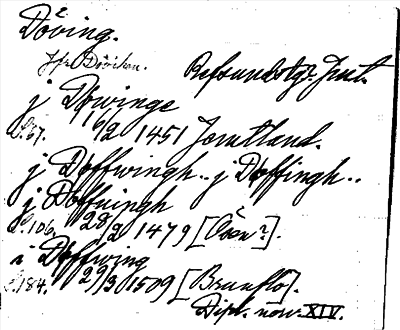 Döving.
Jfr Döviken. Refsundstg. Jmt.
j Døwinge
S. 67. 10/2 1451 Jemtland.
j Døffwingh.. j Døffingh..
j Døffuingh
S. 106. 28/2 1479 [Åsen?].
i Døffwing
S. 184. 29/3 1509 [Brunflo].
Dipl. norv. XIV.